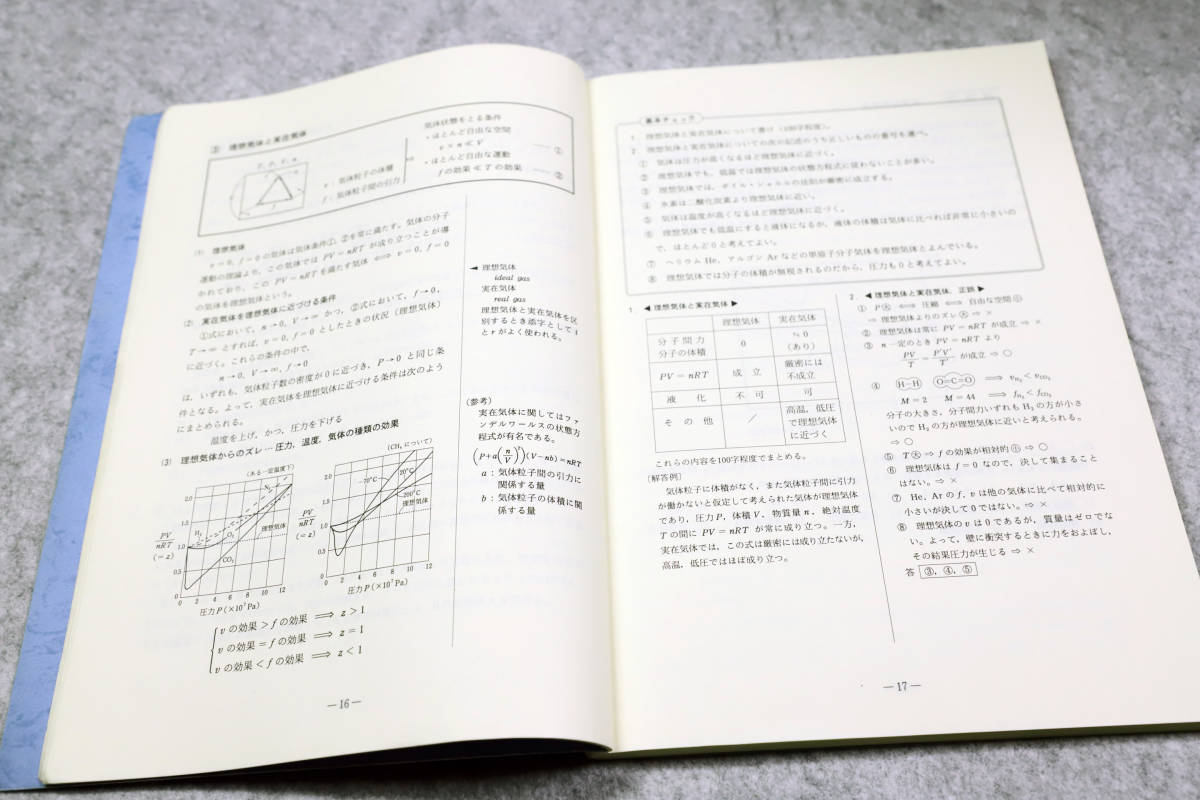 ② 理想気体と実在気体
T, P, V, n
v：気体粒子の体積
f：気体粒子間の引力
気体状態をとる条件
・ほとんど自由な空間
v × n ≪ V ①
・ほとんど自由な運動
fの効果 ≪ Tの効果 ②
(1) 理想気体
v＝0, f＝0の気体は気体条件①, ②を常に満たす。気体の分子
運動の理論より、この気体では PV＝nRT が成り立つことが導
かれており、この PV＝nRTを満たす気体 ⟺ v＝0, f＝0
の気体を理想気体という。
(2) 実在気体を理想気体に近づける条件
①式において, n→0, V→∞ かつ, ②式において, f→0,
T→∞ とすれば, v＝0, f＝0としたときの状況（理想気体）
に近づく。これらの条件の中で,
n→0, V→∞, f→0
は, いずれも, 気体粒子数の密度が0に近づき, P→0 と同じ条
件となる。よって, 実在気体を理想気体に近づける条件は次のよう
にまとめられる。
温度を上げ, かつ, 圧力を下げる
(3) 理想気体からのズレ…圧力, 温度, 気体の種類の効果
(ある一定温度下)
PV/nRT
(＝z)
2.0
1.0
0.5
0
N₂
H₂
O₂
CO₂
理想気体
0 2 4 6 8 10 12
圧力P (×10⁷Pa)
(CH₄について)
PV/nRT
(＝z)
2.0
1.0
0.5
0
−70℃
20℃
200℃
理想気体
0 2 4 6 8 10 12
圧力P (×10⁷Pa)
vの効果＞fの効果 ⟹ z＞1
vの効果＝fの効果 ⟹ z＝1
vの効果＜fの効果 ⟹ z＜1
◀ 理想気体
ideal gas
実在気体
real gas
理想気体と実在気体を区
別するとき添字として i
と r がよく使われる。
(参考)
実在気体に関してはファ
ンデルワールスの状態方
程式が有名である。
(P+a(n/V)²)(V−nb)＝nRT
a：気体粒子間の引力に
関係する量
b：気体粒子の体積に関
係する量
—16—
基本チェック
1 理想気体と実在気体について書け（100字程度）。
2 理想気体と実在気体についての次の記述のうち正しいものの番号を選べ。
① 気体は圧力が高くなるほど理想気体に近づく。
② 理想気体でも, 低温では理想気体の状態方程式に従わないことが多い。
③ 理想気体では, ボイル・シャルルの法則が厳密に成立する。
④ 水素は二酸化炭素より理想気体に近い。
⑤ 気体は温度が高くなるほど理想気体に近づく。
⑥ 理想気体でも低温にすると液体になるが, 液体の体積は気体に比べれば非常に小さいの
で, ほとんど0と考えてよい。
⑦ ヘリウム He, アルゴン Ar などの単原子分子気体を理想気体とよんでいる。
⑧ 理想気体では分子の体積が無視されるのだから, 圧力も0と考えてよい。
1 ◀ 理想気体と実在気体 ▶
理想気体 実在気体
分子間力 分子の体積 0 ≒0 (あり)
PV＝nRT 成立 厳密には不成立
液化 不可 可
その他 ／ 高温, 低圧で理想気体に近づく
これらの内容を100字程度でまとめる。
〔解答例〕
気体粒子に体積がなく, また気体粒子間に引力
が働かないと仮定して考えられた気体が理想気体
であり, 圧力P, 体積V, 物質量n, 絶対温度
Tの間に PV＝nRT が常に成り立つ。一方,
実在気体では, この式は厳密には成り立たないが,
高温, 低圧ではほぼ成り立つ。
2. ◀ 理想気体と実在気体, 正誤 ▶
① P㊅ ⟺ 圧縮 ⟺ 自由な空間㊉
⇒ 理想気体よりのズレ㊅ ⇒ ×
② 理想気体は常に PV＝nRT が成立 ⇒ ×
③ n一定のとき PV＝nRT より
PV/T ＝ P′V′/T′ が成立 ⇒ ○
④ H−H O=C=O ⟹ vH₂＜vCO₂
M＝2 M＝44 ⟹ fH₂＜fCO₂
分子の大きさ, 分子間力いずれも H₂ の方が小さ
いので H₂ の方が理想気体に近いと考えられる。
⇒ ○
⑤ T㊅ ⇒ fの効果が相対的㊉ ⇒ ○
⑥ 理想気体は f＝0 なので, 決して集まること
はない。⇒ ×
⑦ He, Ar の f, v は他の気体に比べて相対的に
小さいが決して0ではない。⇒ ×
⑧ 理想気体の v は0であるが, 質量はゼロでな
い。よって, 壁に衝突するときに力をおよぼし,
その結果圧力が生じる ⇒ ×
答 ③, ④, ⑤
—17—